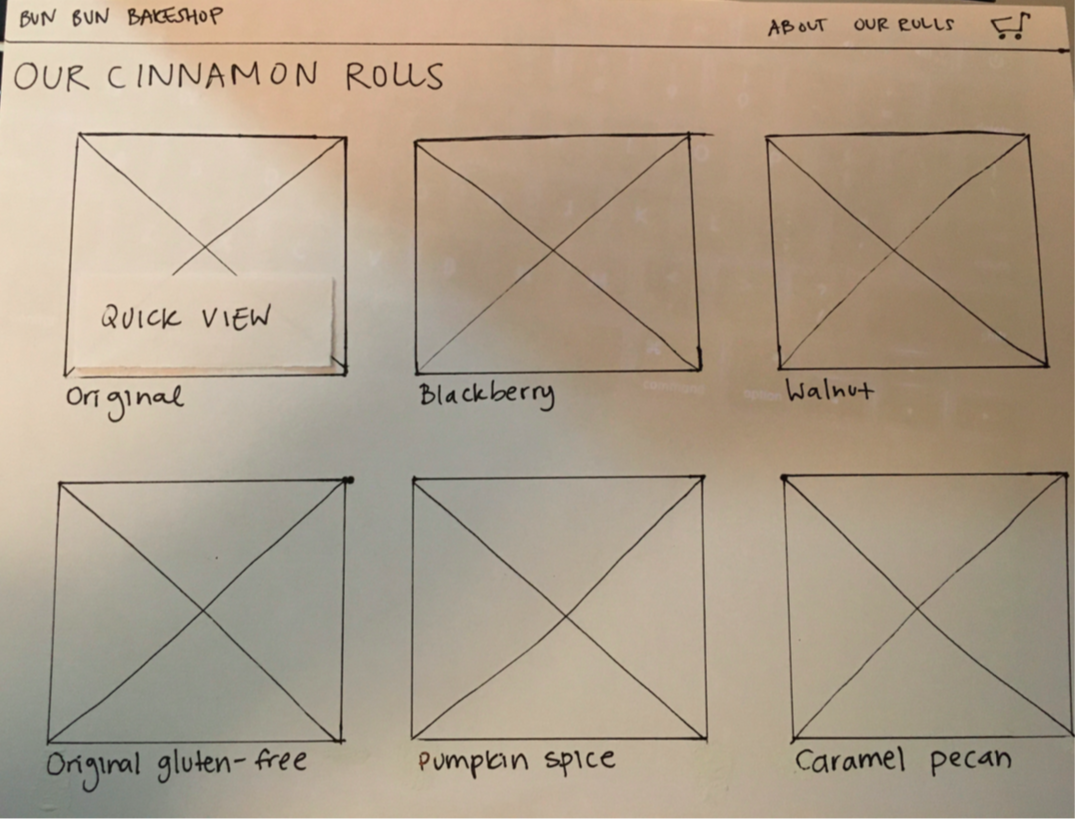 BUN BUN BAKESHOP
ABOUT OUR ROLLS
OUR CINNAMON ROLLS
QUICK VIEW
Original
Blackberry
Walnut
Original gluten-free
Pumpkin spice
Caramel pecan